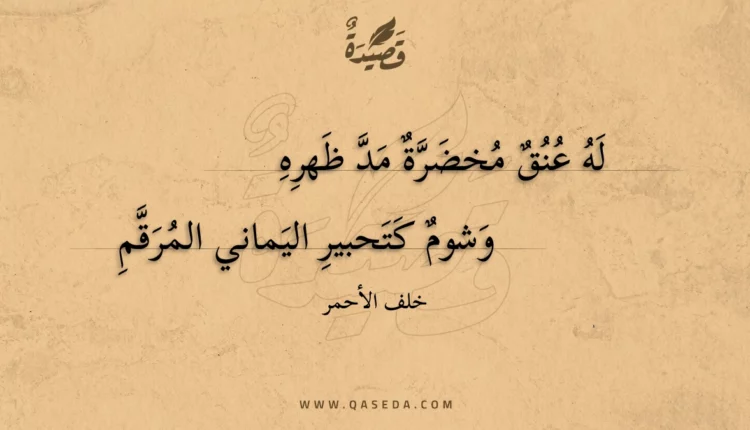 قَصِيدَةٌ
لَهُ عُنُقٌ مُخضَرَّةٌ مَدَّ ظَهرِهِ
وَشومٌ كَتَحبيرِ اليَماني المُرَقَّمِ
خلف الأحمر
WWW.QASEDA.COM